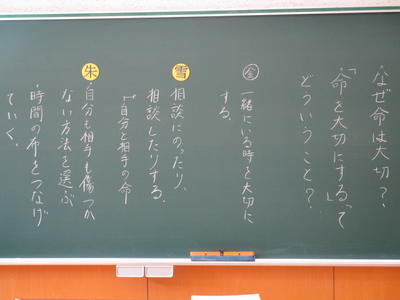 ・なぜ命は大切?
・「命を大切にする」って
どういうこと?
金 一緒にいる時を大切に
する。
雪 相談にのったり、
相談したりする。
自分と相手の命
朱 ・自分も相手も傷つか
ない方法を選ぶ
・時間の布をつなげ
ていく。